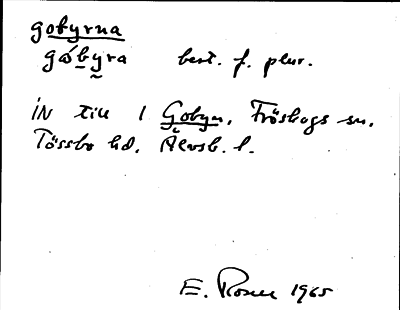 gobyrna
gábyra best. f. plur.
IN till 1 Gobyn, Fröskogs sn,
Tössbo hd, Älvsb. l.
E. Rosén 1965